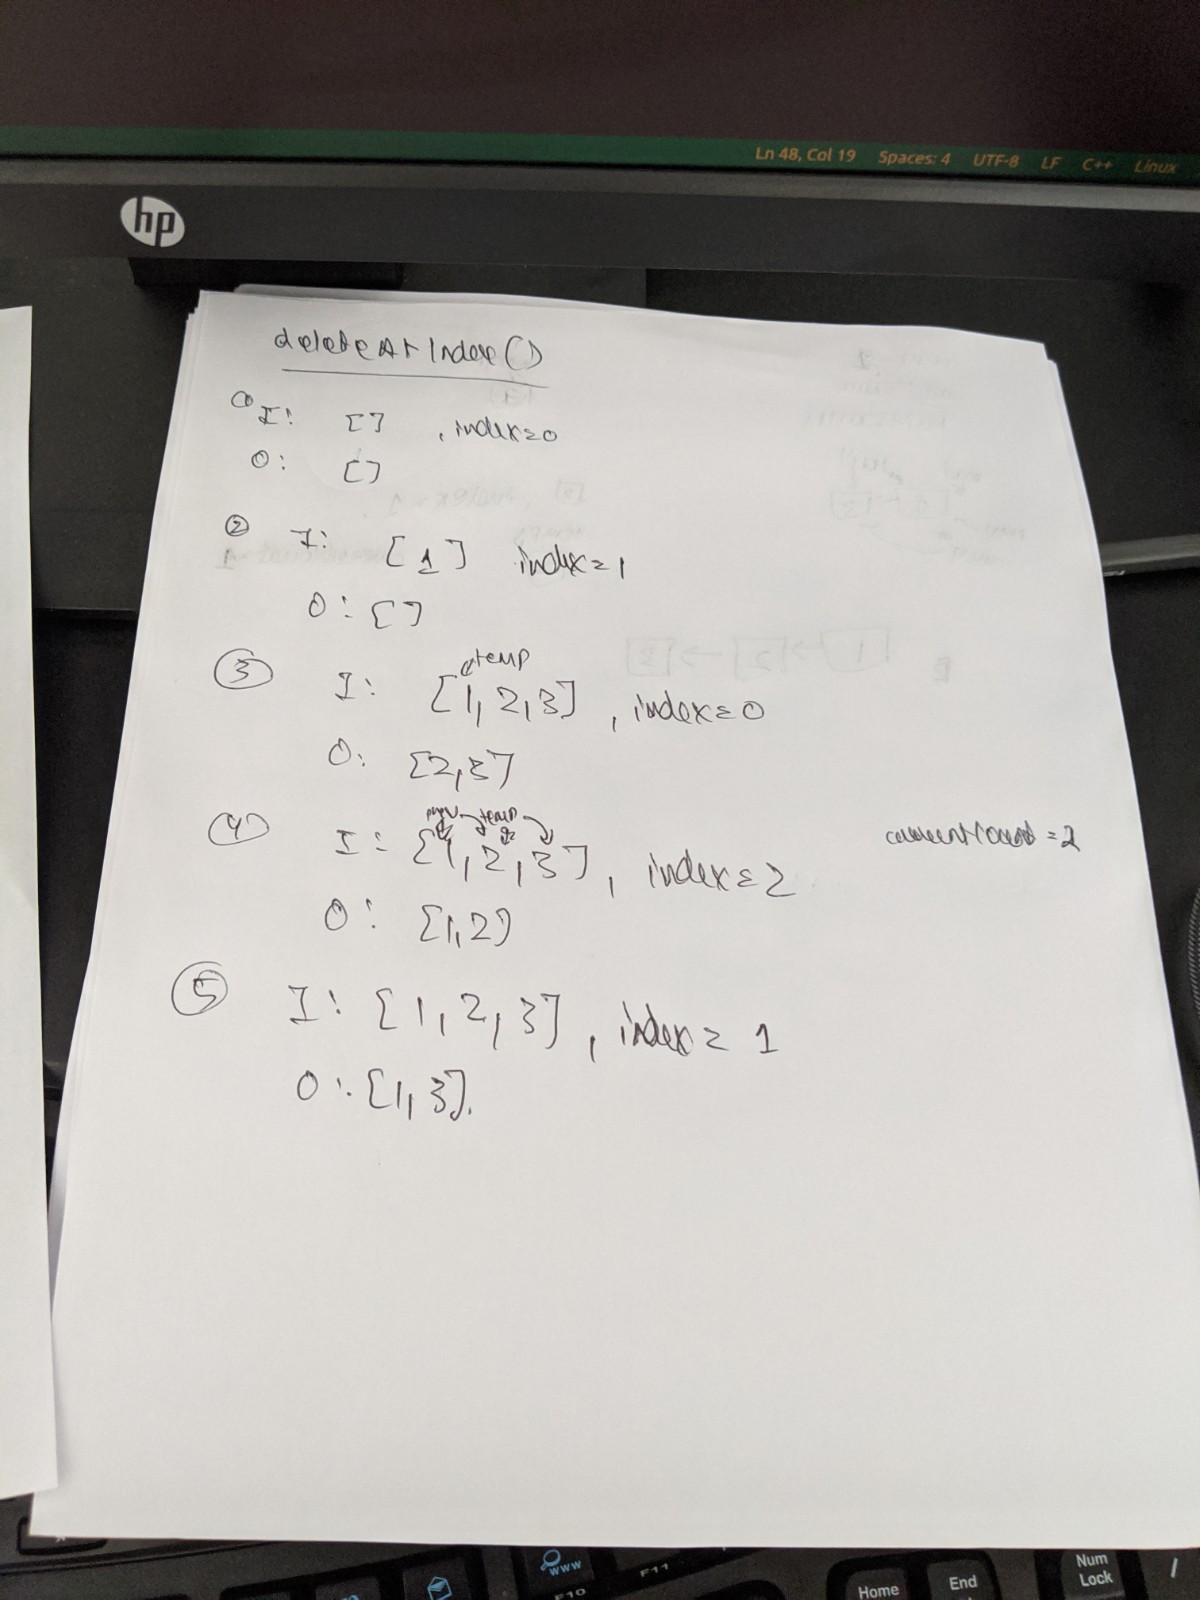 Ln 48, Col 19 Spaces: 4 UTF-8 LF C++ Linux
hp
deleteAtIndex()
① I: [] , index=0
O: []
② I: [1] index=1
O: []
temp
③ I: [1, 2, 3] , index=0
O: [2,3]
prev temp
④ I: [1, 2, 3] , index=2 currentCount = 2
O: [1,2]
⑤ I: [1, 2, 3] , index = 1
O: [1,3].
www
F10
F11
Home
End
Num
Lock